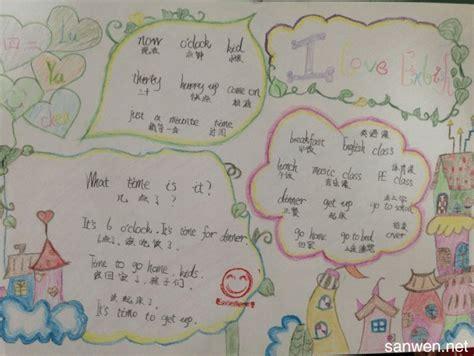 四二
Lu
Ya
I love English
now o'clock kid
现在 点钟 小孩
thirty hurry up come on
三十 快点
just a minute time
稍等一会 时间
breakfast English class
英语课
lunch music class PE class
午饭 音乐课 体育课
dinner get up go to school
正餐 起床 去上学
go home go to bed over
回家 上床睡觉 结束
What time is it?
几点了?
It's 6 o'clock. It's time for dinner.
Time to go home, kids.
该回家了,孩子们。
该起床了。
It's time to get up.
sanwen.net